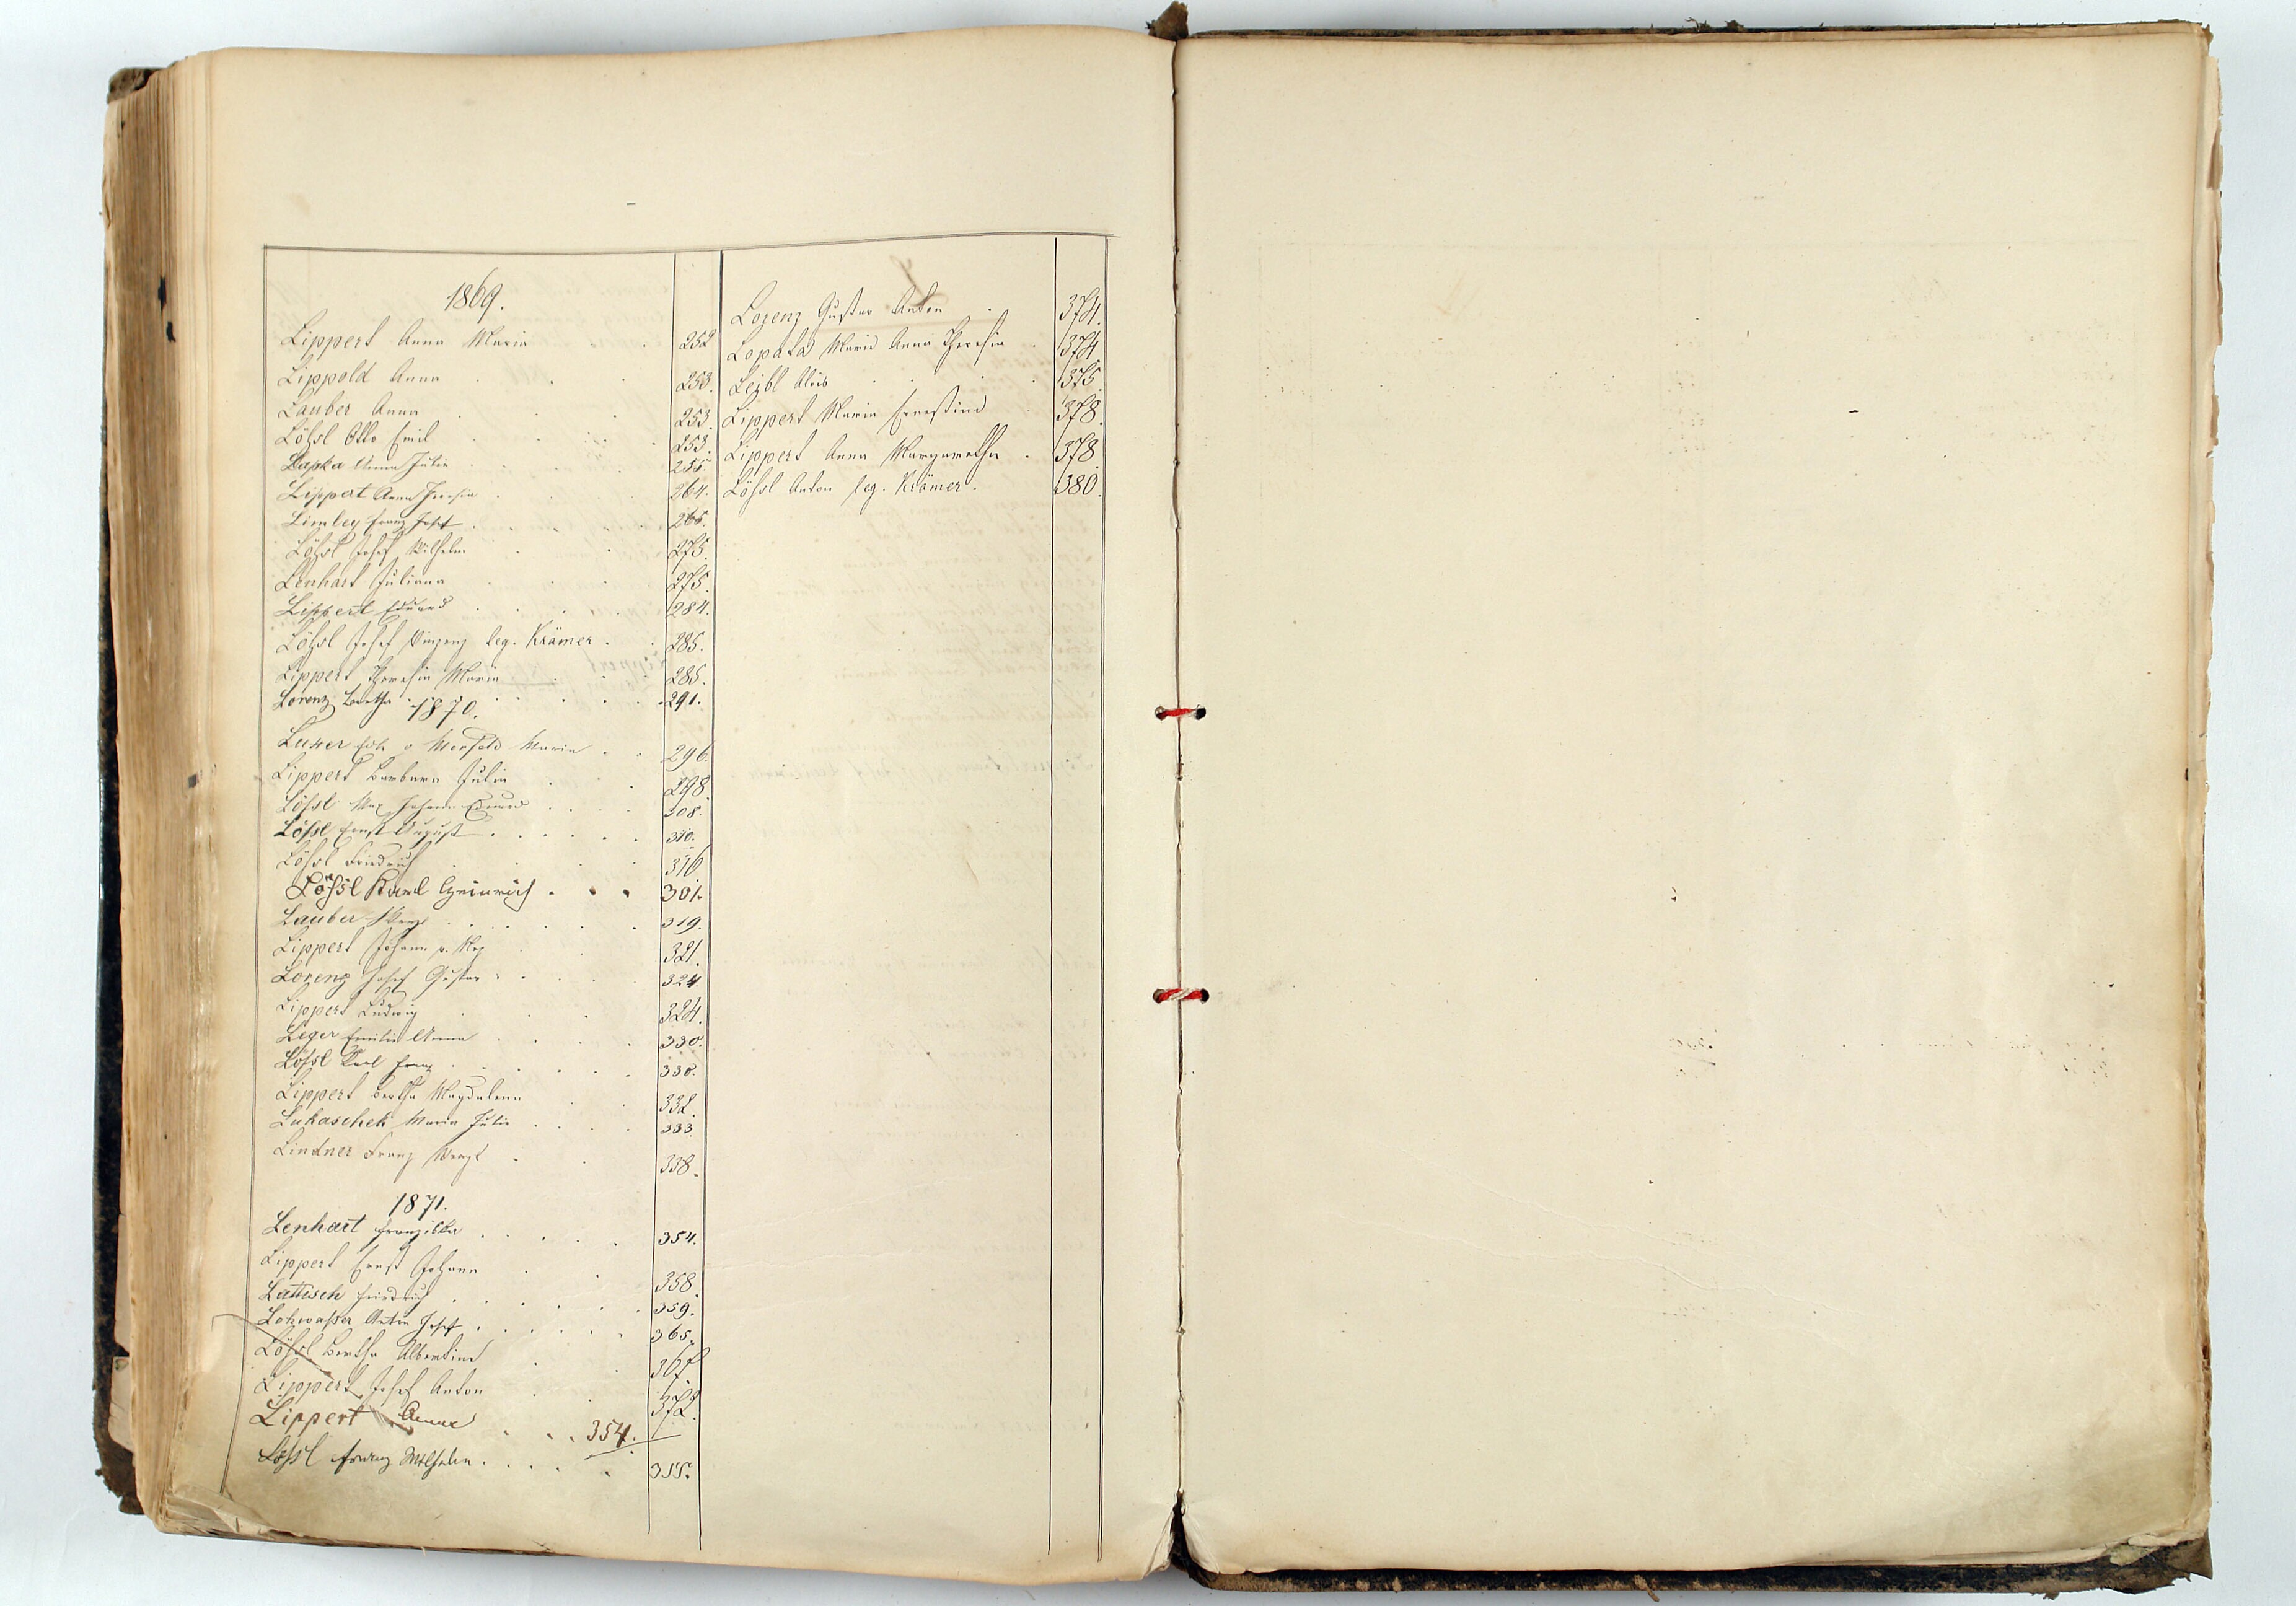 1869.
Lippert Anna Maria 252
Lippold Anna 253.
Lauber Anna 253.
Lößl Otto Emil 253.
Lapka Anna Julie 255.
Lippert Anna Theresia 264.
Limley Franz Josef 265.
Lößl Josef Wilhelm 275.
Lenhart Juliana 275.
Lippert Eduard 284.
Lößl Josef Vinzenz leg. Krämer 285.
Lippert Theresia Maria 285.
Lorenz Bertha 291.
1870.
Luxer Maria 296.
Lippert Barbara Julia 298.
Lößl Max Johann Eduard 308.
Lößl Ernst August 310.
Lößl Friedrich 316
Lößl Karl Heinrich 301.
Lauber 319.
Lippert Johann 321.
Lorenz Josef Gustav 324
Lippert Ludwig 324.
Leger Emilie Anna 330.
Lößl Karl Franz 330.
Lippert Bertha Magdalena 332.
Lukaschek Maria Julie 333.
Lindner Franz 338.
1871.
Lenhart Franziska 354.
Lippert Ernst Johann 358.
Lattisch Friedrich 359.
Lohwaßer Anton Josef 365.
Lößl Bertha Albertine 367.
Lippert Josef Anton 372.
Lippert Anna 354.
Lößl Franz Wilhelm 355.
Lorenz Gustav Anton 374.
Lopata Maria Anna Theresia 374
Leibl Alois 375.
Lippert Maria Ernestine 378.
Lippert Anna Margaretha 378
Lößl Anton leg. Krämer. 380.